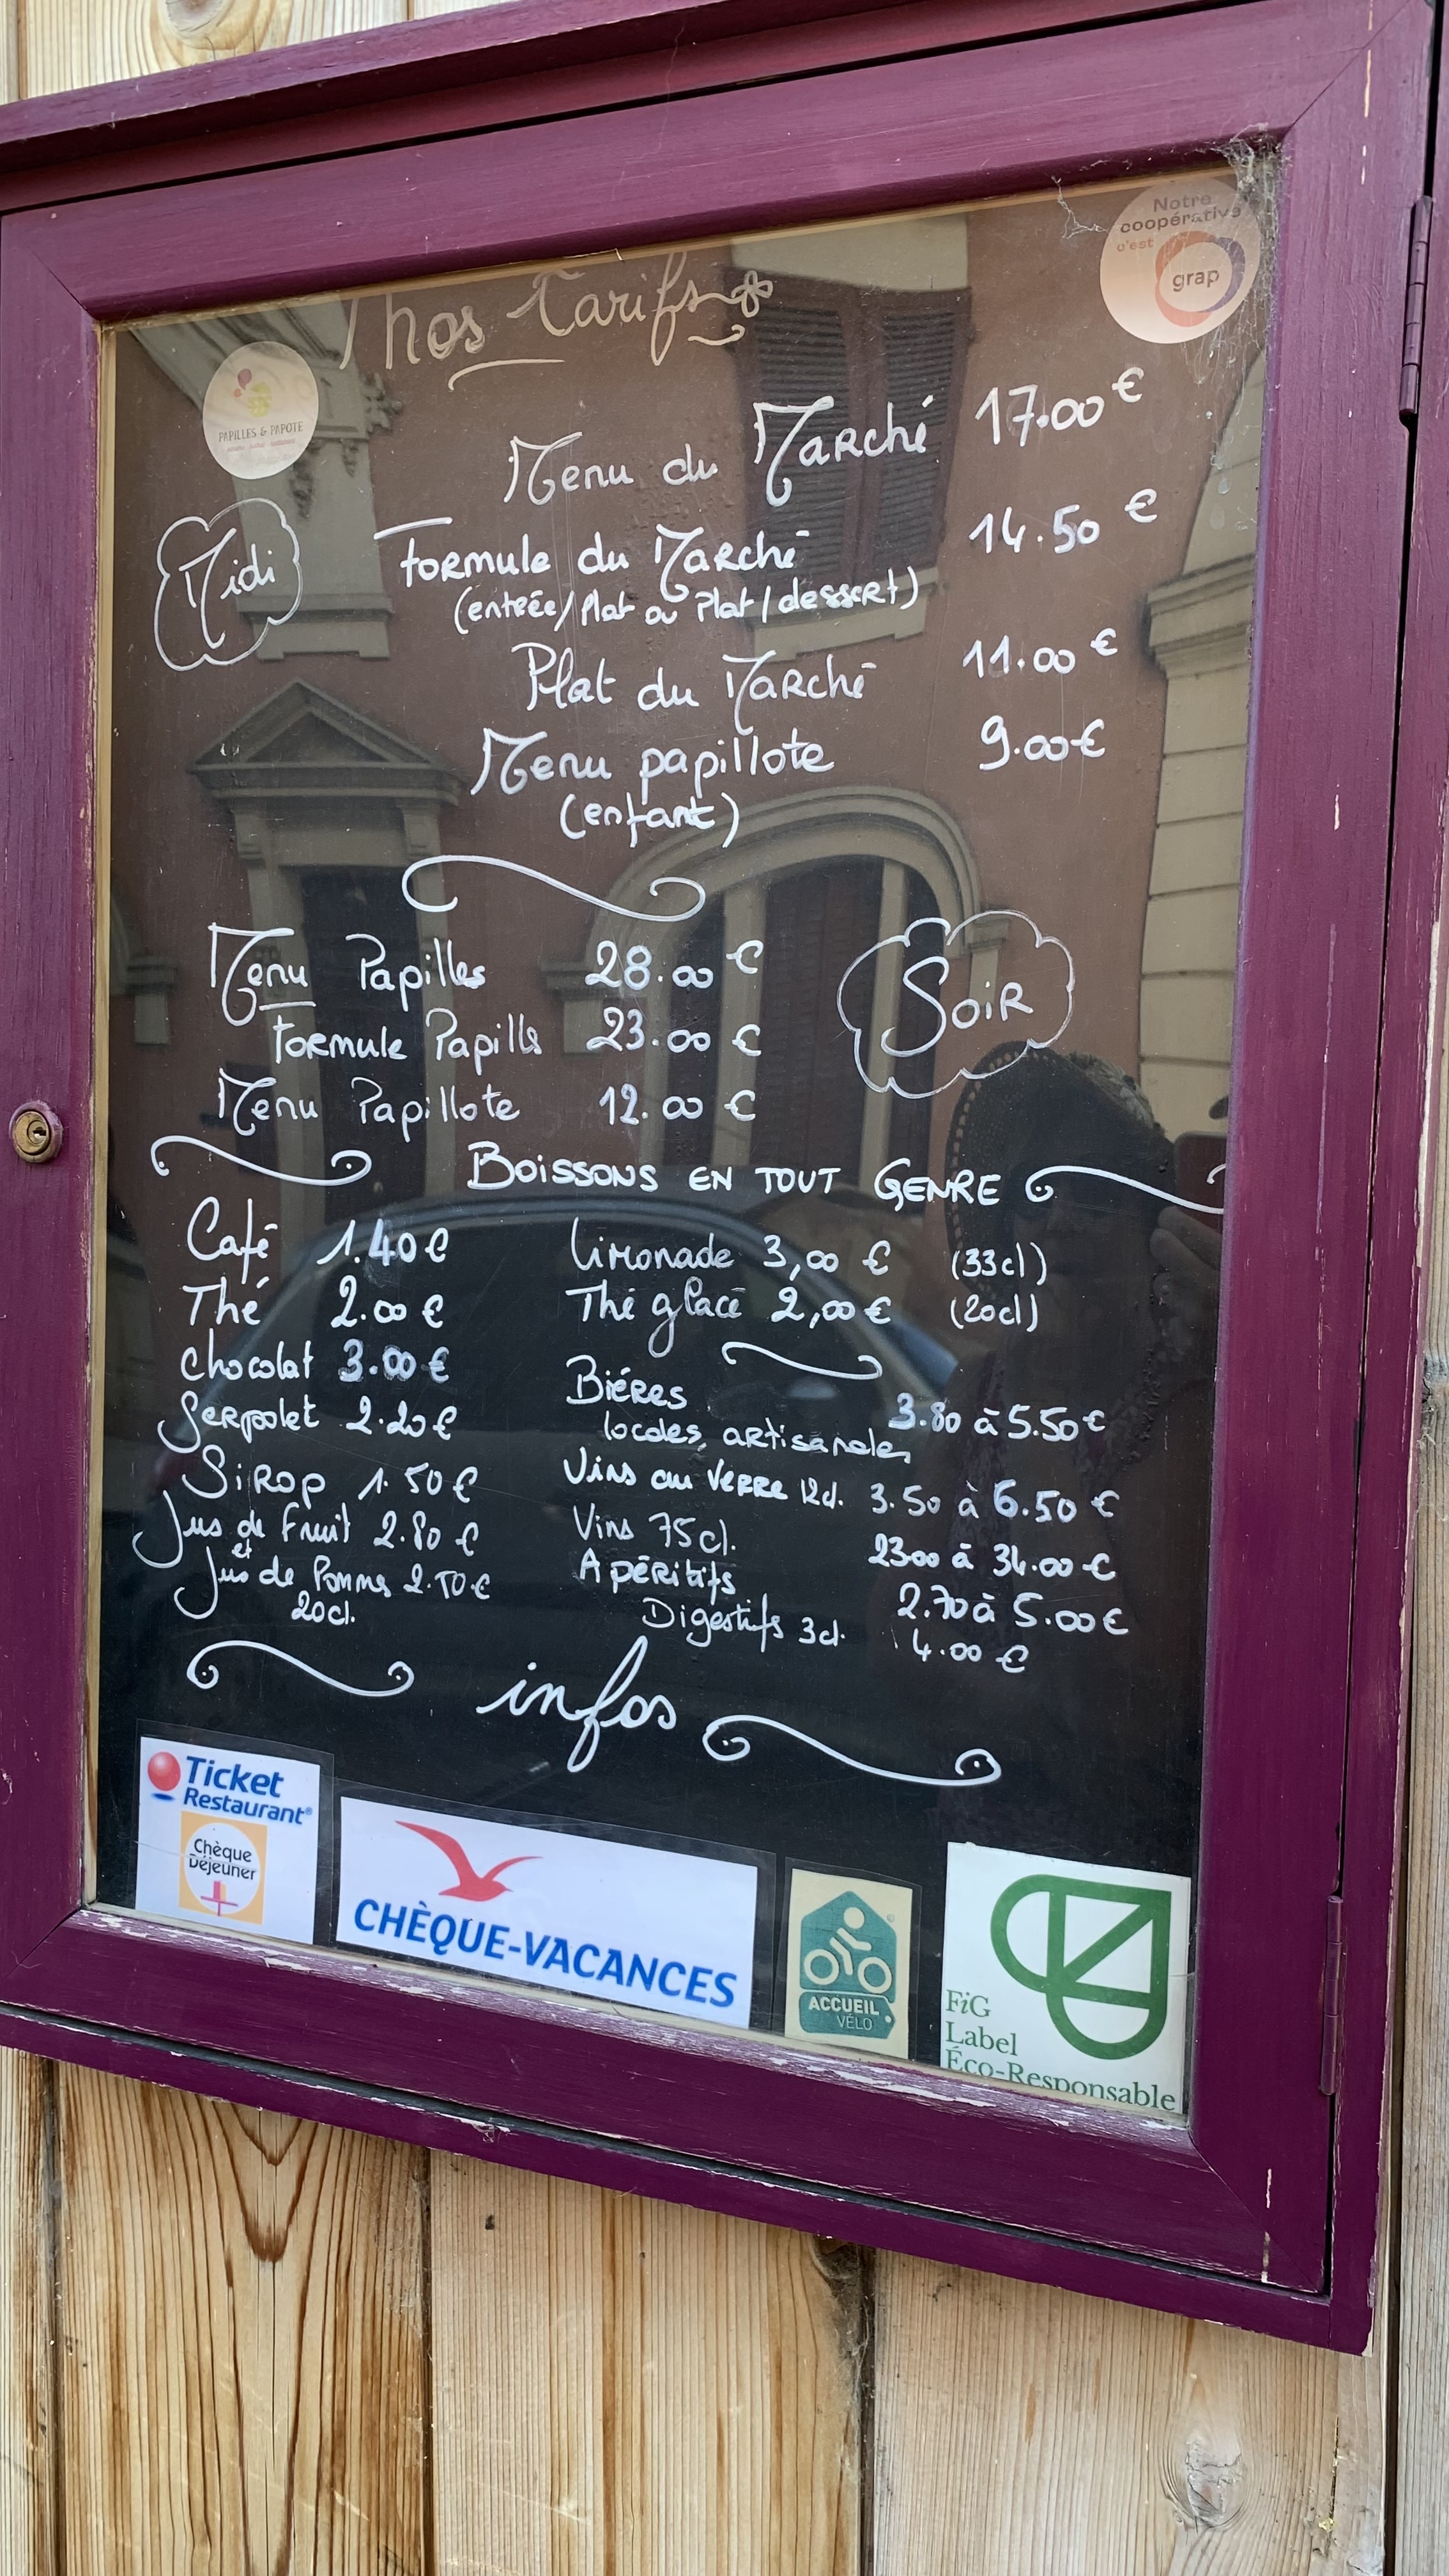 Notre
coopérative
c'est
grap
nos tarifs
PAPILLES & PAPOTE
Menu du Marché 17.00 €
Midi
Formule du Marché 14.50 €
(entrée/Plat ou Plat/dessert)
Plat du Marché 11.00 €
Menu papillote 9.00 €
(enfant)
Menu Papilles 28.00 €
Soir
Formule Papilles 23.00 €
Menu Papillote 12.00 €
BOISSONS EN TOUT GENRE
Café 1.40 €
Thé 2.00 €
chocolat 3.00 €
Serpolet 2.20 €
Sirop 1.50 €
Jus de Fruit 2.80 €
et
Jus de Pommes €
20cl.
Limonade 3,00 € (33cl)
Thé glacé 2,00 € (20cl)
Biéres
locales, artisanales 3.80 à 5.50 €
Vins au Verre 12cl. 3.50 à 6.50 €
Vins 75cl. 2300 à 34.00 €
Apéritifs 2.70 à 5.00 €
Digestifs 3cl. 4.00 €
infos
Ticket
Restaurant®
Chèque
Déjeuner
CHÈQUE-VACANCES
ACCUEIL
VÉLO
FiG
Label
Éco-Responsable